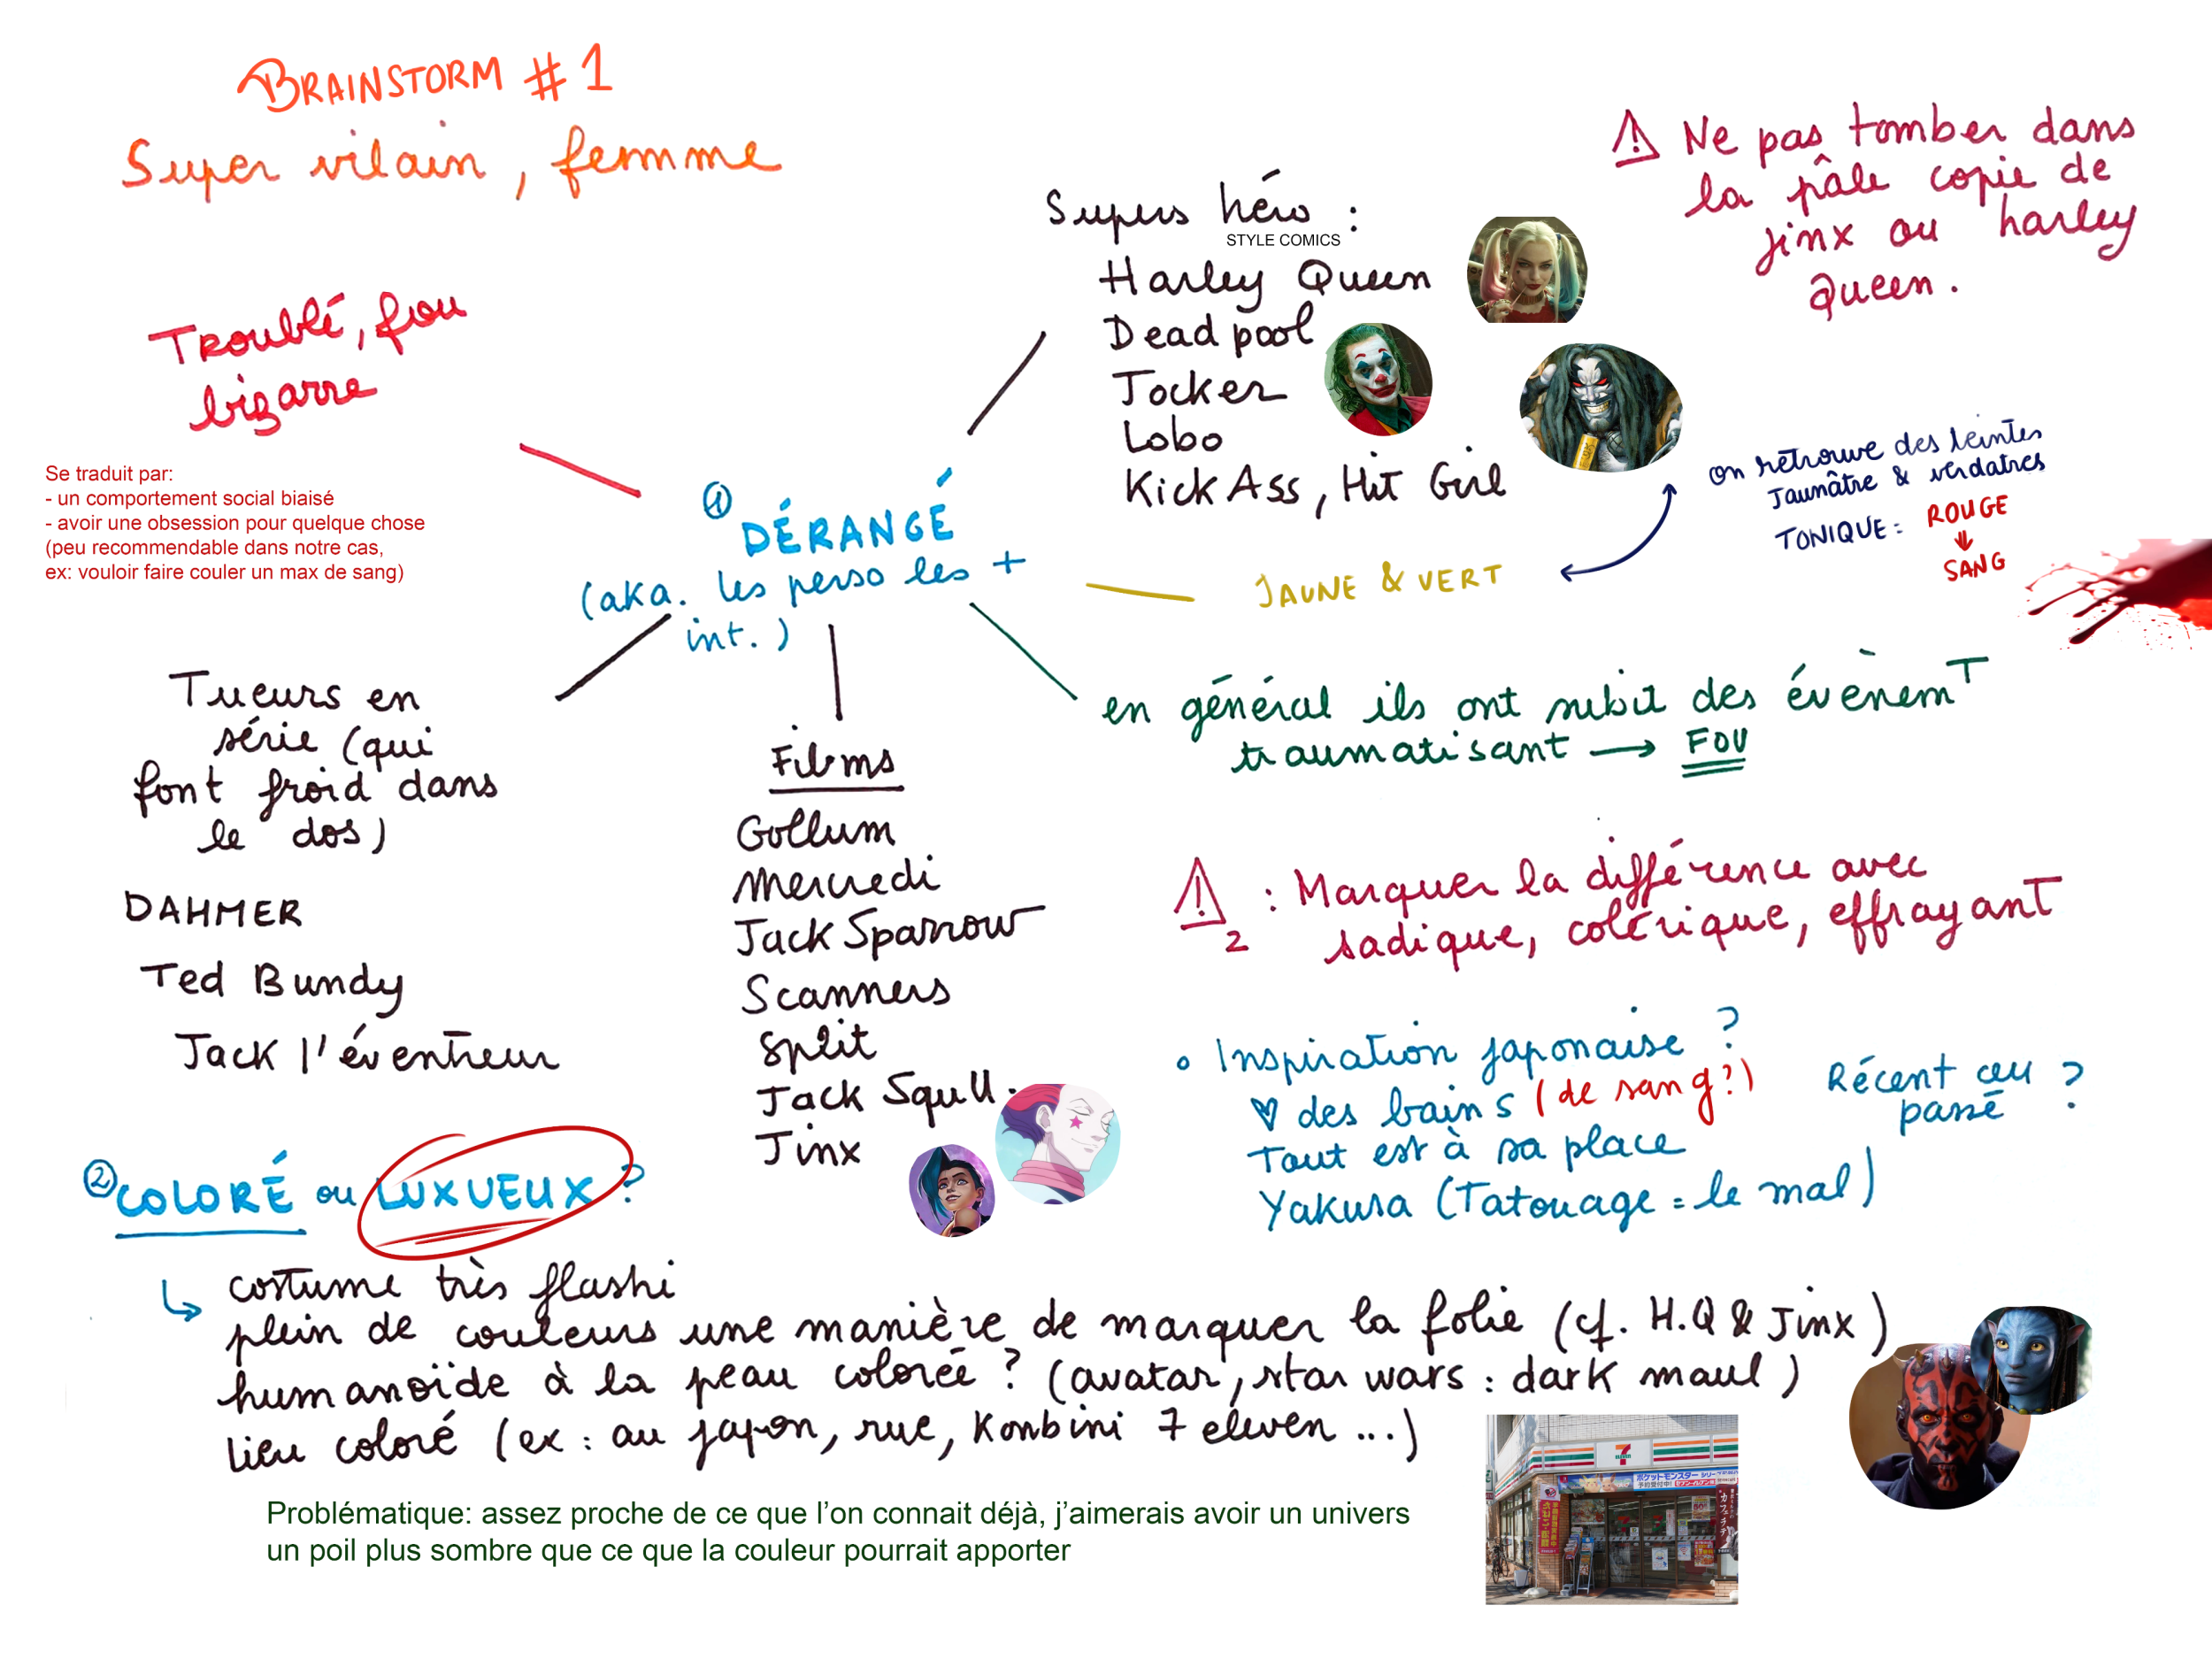 BRAINSTORM #1
Super vilain, femme
⚠ Ne pas tomber dans
la pâle copie de
Jinx ou harley
Queen.
Supers héro :
STYLE COMICS
Harley Queen
Dead pool
Jocker
Lobo
Kick Ass, Hit Girl
Troublé, fou
bizarre
Se traduit par:
- un comportement social biaisé
- avoir une obsession pour quelque chose
(peu recommendable dans notre cas,
ex: vouloir faire couler un max de sang)
① DÉRANGÉ
(aka. les perso les +
int.)
on retrouve des teintes
Jaunâtre & verdatres
TONIQUE : ROUGE
⇓
SANG
JAUNE & VERT
en général ils ont subit des évènemT
traumatisant → FOU
Tueurs en
série (qui
font froid dans
le dos)
DAHMER
Ted Bundy
Jack l'éventreur
Films
Gollum
Mercredi
Jack Sparrow
Scanners
Split
Jack Squll.
Jinx
⚠2 : Marquer la différence avec
sadique, colérique, effrayant
• Inspiration japonaise ?
♡ des bains (de sang?)
Tout est à sa place
Yakusa (Tatouage = le mal)
Récent ou
passé ?
② COLORÉ ou LUXUEUX ?
↳ costume très flashi
plein de couleurs une manière de marquer la folie (cf. H.Q & Jinx)
humanoïde à la peau colorée ? (avatar, star wars : dark maul)
lieu coloré (ex : au japon, rue, Konbini 7 eleven ...)
Problématique: assez proche de ce que l'on connait déjà, j'aimerais avoir un univers
un poil plus sombre que ce que la couleur pourrait apporter
7
ポケットモンスター